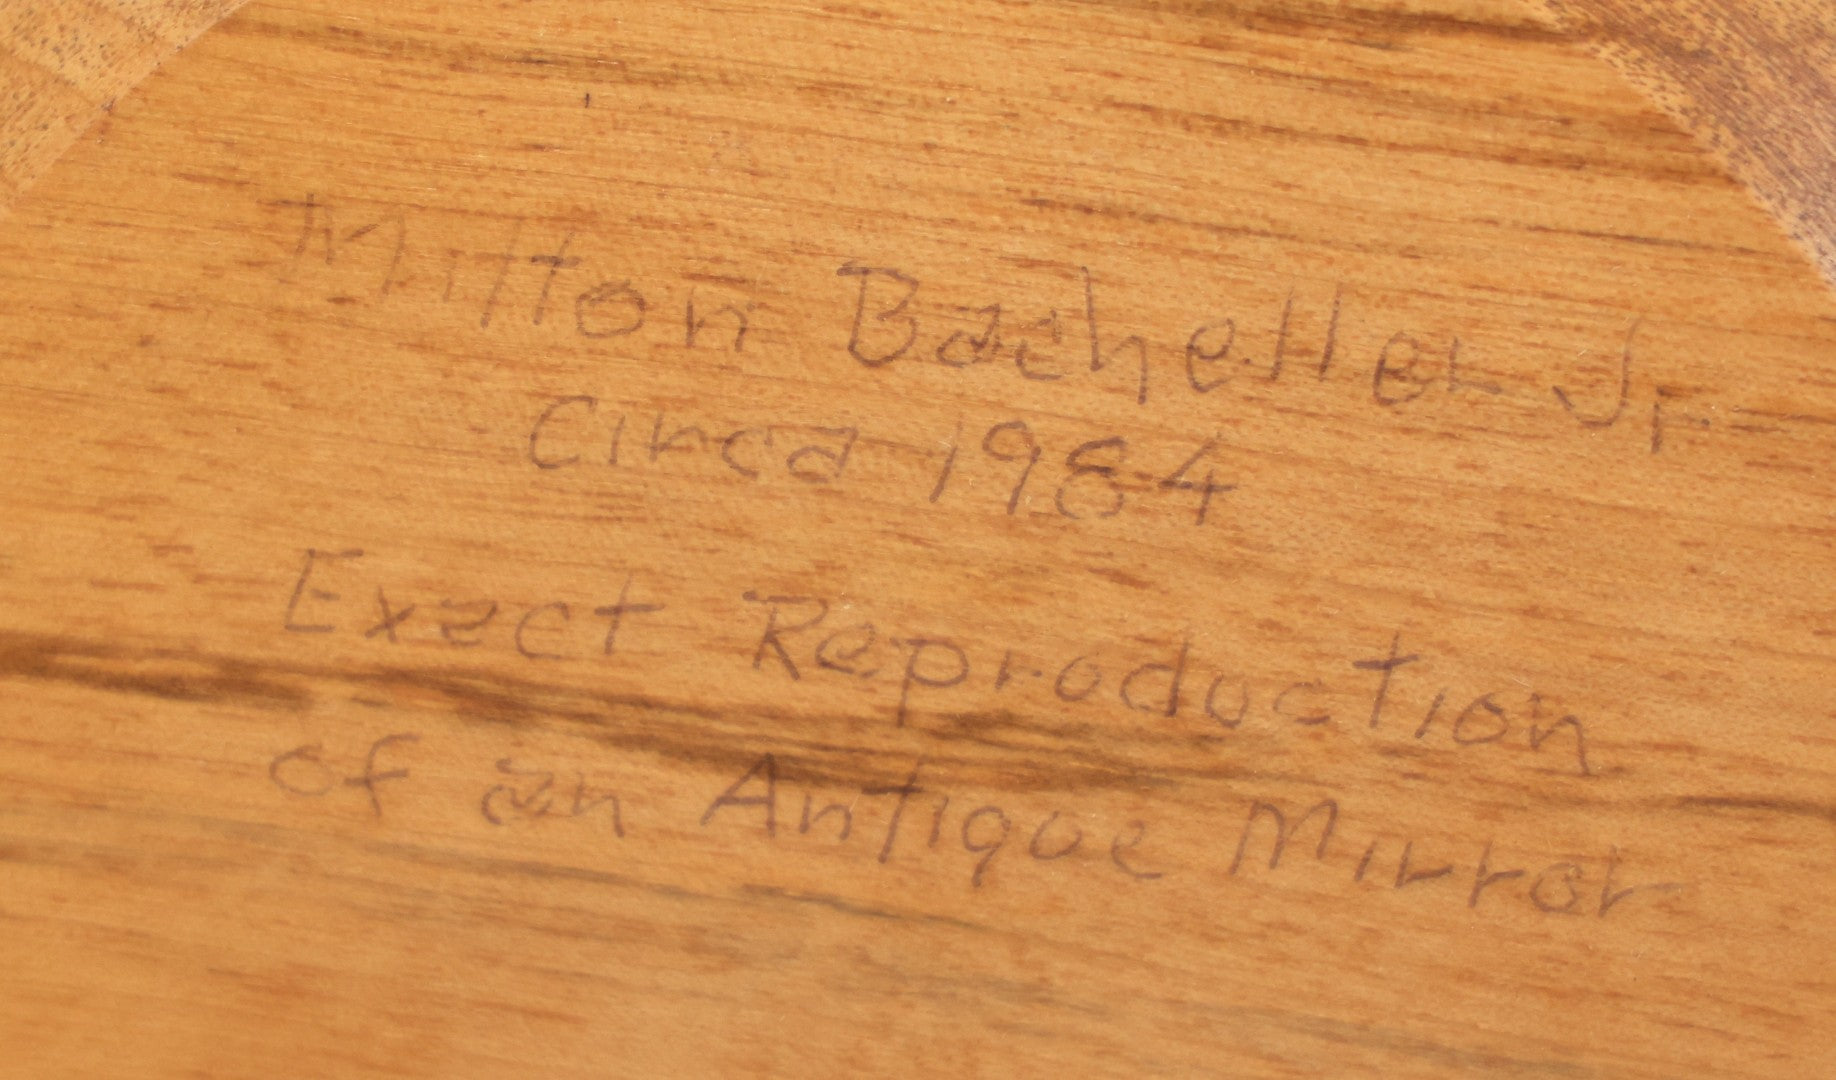 Milton Bacheller Jr.
Circa 1984
Exact Reproduction
of an Antique Mirror